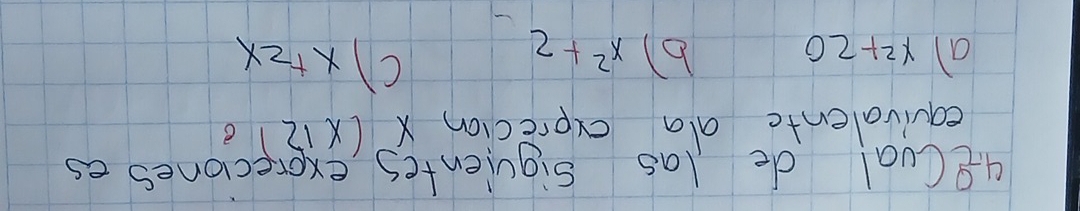 4.-¿Cual de las siguientes expreciones es
equivalente ala exprecion x (x 12)?
a) x²+20 b) x²+2 c) x+2x